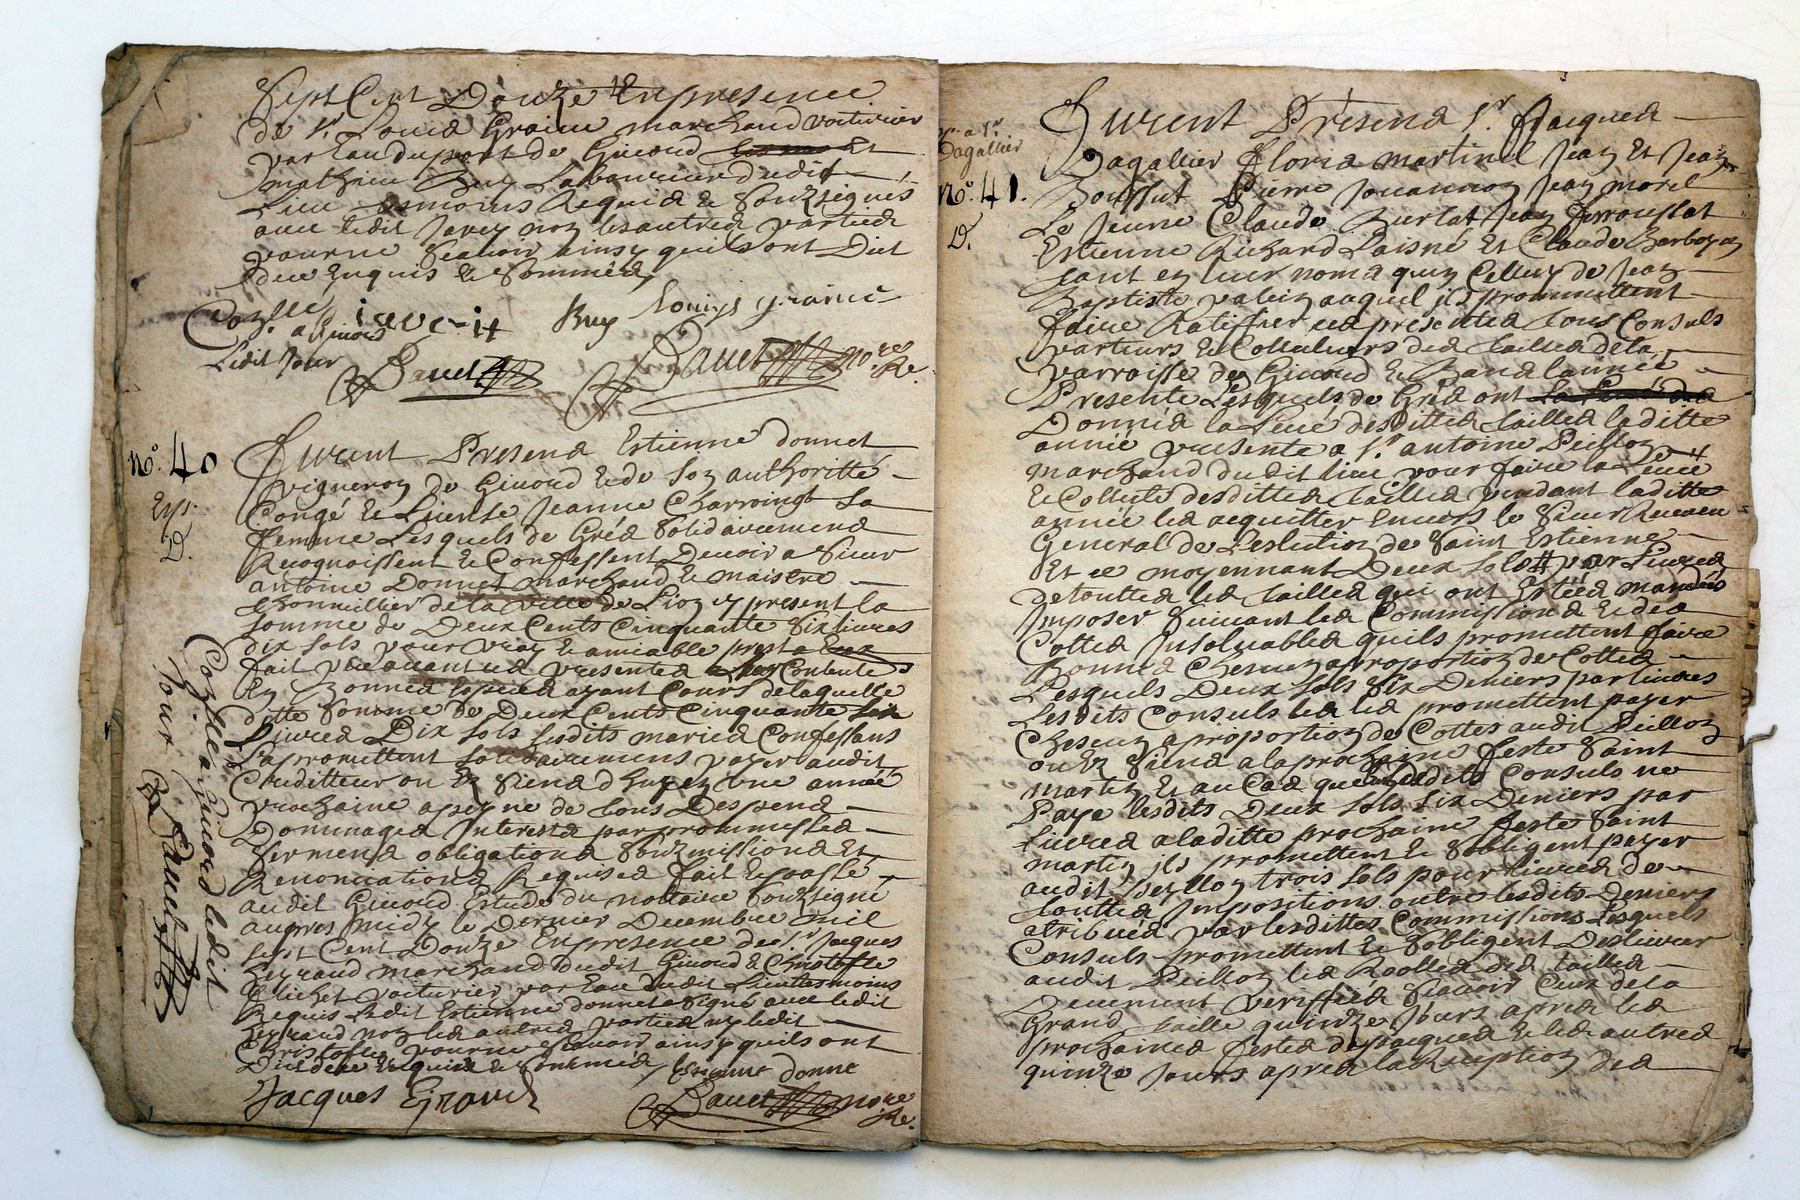 Sept Cent Douze En presence
de Sr. Louis Graine marchand voiturier
par Eau du port de Givord
mathieu Buy Laboureur dudit
Lieu tesmoins Requis & Soubsignés
avec ledit Javey non les autres parties
pour ne Scavoir ainsy quils ont Dit
de ce Enquis & Sommés
a Givord
Buy Louiys graine
Ledit Jour
Davet
Davet nore. Re.
No. 40
Furent Presens Estienne donnet
vigneron de Givord & de Son authoritté
Congé & License Jeanne Charroingt Sa
femme Lesquels de Grés Solidairemens
Recognoissent & Confessent Devoir a Sieur
antoine Donnet marchand & maistre
de la ville de Lion cy present la
Somme de Deux Cents Cinquante Six livres
dix Sols pour vray & amiable prest a Eux
fait par avant ces presentes Contents
En bonnes Especes ayant Cours de laquelle
ditte Somme de Deux Cents Cinquante Six
Livres Dix Sols Lesdits mariés Confessans
La promettent Solidairemens payer audit
Creditteur ou Es Siens d huy en une année
prochaine a peyne de tous Despens
Dommages Interests par prommesses
Sermens obligations Soubmissions Et
Renonciations Requises fait & passé
audit Givord Estude du nottaire Soubsigné
apres midy le Dernier Decembre mil
Sept Cent Douze En presence de Sr. Jacques
marchand dudit Givord & Christofle
voiturier par Eau dudit Lieu tesmoins
Requis Ledit Estienne donnet a Signé avec ledit
non les autres parties ny ledit
Christofle pour ne Scavoir ainsy quils ont
Dit de ce Enquis & Sommés Estienne donne
Jacques
Davet nore Re.
a Givord ledit
Jour
Davet
Dagallier
No. 41.
D.
Furent Presens Sr. Jacques
Dagallier Floris martinel Jean Et Jean
Boussut Pierre Jouannon Jean morel
Le Jeune Claude Burlat Jean
Estienne Richard Laisné Et Claude
tant en leur noms quen Celluy de Jean
Baptiste auquel ils prommettent
faire Ratiffier ces presentes tous Consuls
parteurs & Collecteurs des tailles de la
parroisse de Givord & Bans lannée
Presente Lesquels de Grés ont
Donnés la Levé desdittes tailles laditte
année presente a Sr. antoine Peillon
marchand dudit lieu pour faire la Levée
& Collecte desdittes tailles pendant laditte
année les acquitter Envers le Sieur Receveur
General de Leslection de Saint Estienne
Et ce moyennant Deux Sols par Livres
de touttes les tailles qui ont Estées mandées
Imposer Suivant les Commissions & des
Cottes Insolvables quils promettent faire
Bonnes Chescun a proportion de Cottes
Lesquels Deux Sols Six Deniers par livres
Lesdits Consuls les promettent payer
Chescun a proportion de Cottes audit Peillon
ou Es Siens a la prochaine feste Saint
martin Et au Cas que lesdits Consuls ne
Paye lesdits Deux Sols Six Deniers par
Livres a laditte prochaine feste Saint
martin ils promettent & Sobligent payer
audit Peyllon trois Sols pour livres de
touttes Impositions outre lesdits Deniers
atribués par lesdittes Commissions Lesquels
Consuls promettent & Sobligent Deslivrer
audit Peillon les Roolles des tailles
Deuement veriffiés Scavoir Ceux de la
Grand taille quinze Jours apres les
prochaines festes de pacques & les autres
quinze Jours apres la Reception des